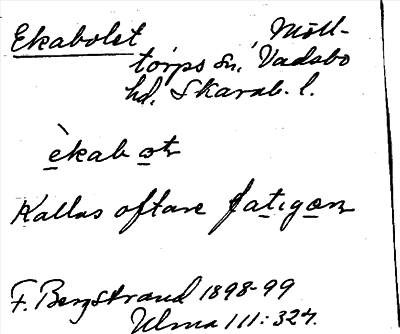 Ekabolet Möll-
torps sn, Vadsbo
hd, Skarab. l.
Kallas oftare fatıgən
F. Bergstrand 1898-99
Ulma 111:327.